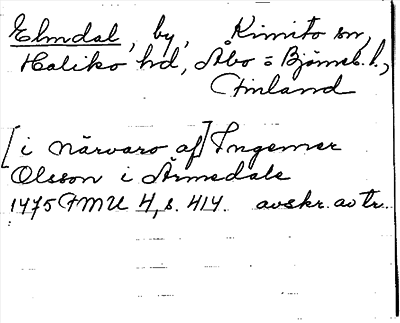 Elmdal, by, Kimito sn,
Haliko hd, Åbo = Björneb. l.,
Finland
[i närvaro af] Ingemer
Olsson i Ärmedale
1475 FMU 4, s. 414. avskr. av tr.